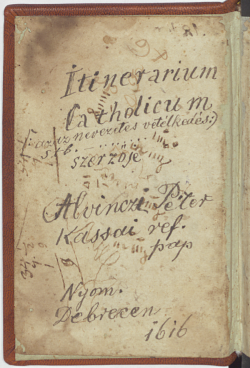 Itinerarium
Catholicum
nevezetes vetélkedés
stb.
szerzője
Alvinczi Péter
Kassai ref.
pap
Nyom.
Debrecen
1616